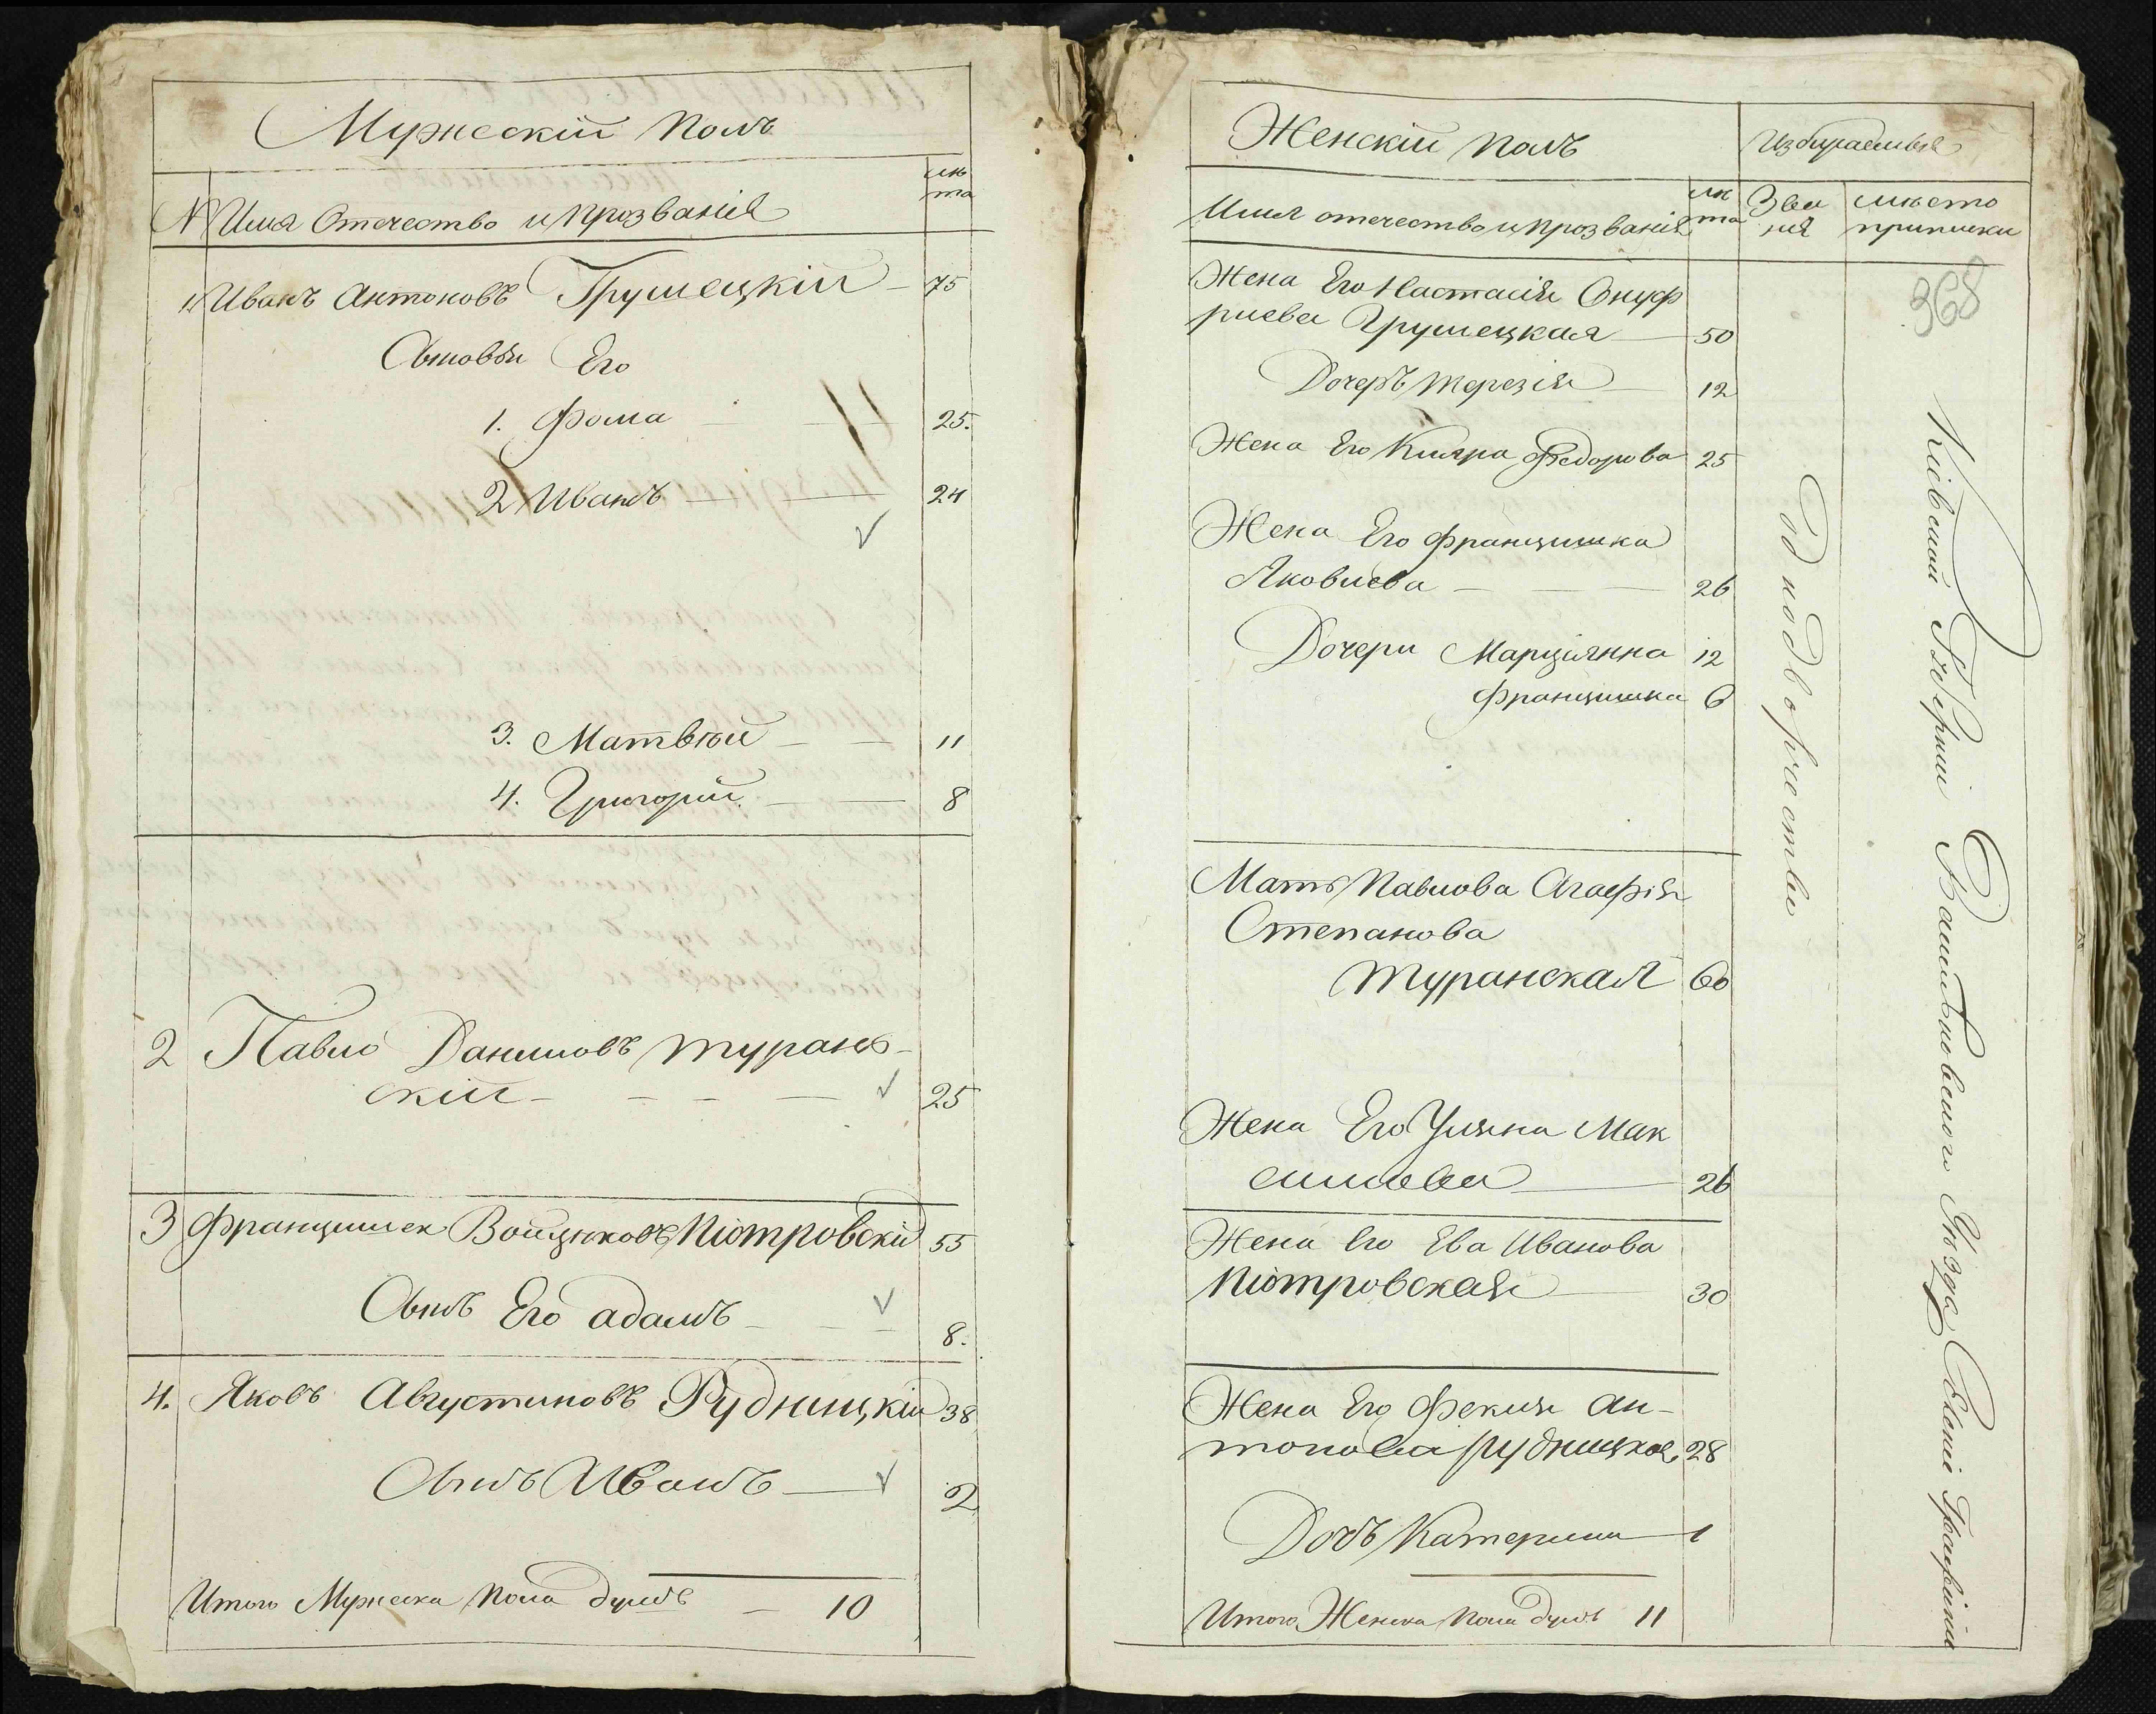 Мужескій полъ
№ Имя Отечество и прозванія
лѣ
та
1 Иванъ Антоновъ Грушецкій — 75
Сыновья Его
1. Фома — — 25.
2 Иванъ — — 24
3. Матвѣй — — 11
4. Григорій — — 8
2 Павло Даниловъ Туранс-
скій — — — 25
3 Францишек Войцѣховъ Піотровскій 55
Сынъ Его адамъ — — 8.
4. Яковъ Августиновъ Рудницкій 38
Сынъ Иванъ — 2
Итого Мужеска пола душъ — 10
Женскій полъ
Избираемыя
Имя отечество и прозванія
лѣ
та
Зва
нія
мѣсто
приписки
368
Жена Его Настасія Онуф
риева Грушецкая — 50
Дочеръ Терезія — 12
Жена Его Кляра Федорова 25
Жена Его Францишка
Яковлева — — — 26
Дочери Марціянна 12
Францишка 6
Мать Павлова Агафія
Степанова
Туранская 60
Жена Его Уляна Мак
симова — 26
Жена Его Ева Иванова
Піотровская — 30
Жена Его Фекля Ан-
тонова Рудницкая 28
Дочъ Катерина — 1
Итого Женска пола душъ 11
Однодворчества
Кіевской Губерніи Васильковского Уѣзда Селеніе